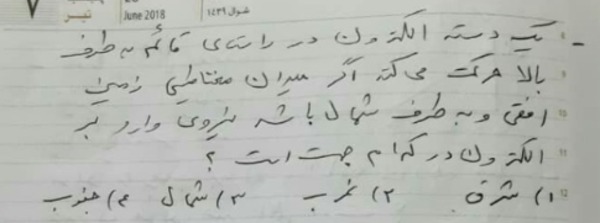 June 2018
تیر
شوال ۱۴۳۹
- یک دسته الکترون در راستای قائم به طرف
بالا حرکت می‌کند اگر میدان مغناطیسی زمین
افقی و به طرف شمال باشد نیروی وارد بر
الکترون در کدام جهت است ؟
۱) شرق ۲) غرب ۳) شمال ۴) جنوب